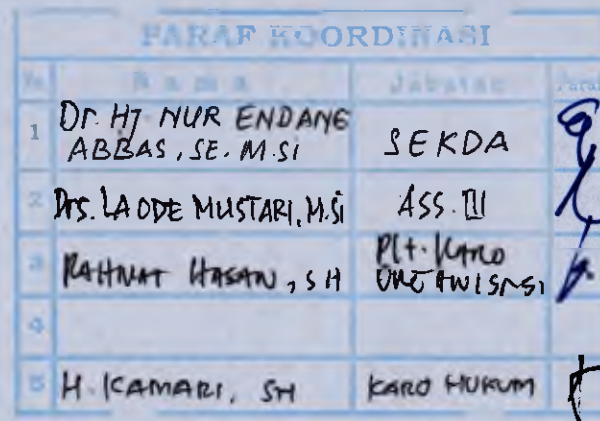 PARAF KOORDINASI
No Nama Jabatan Paraf
1 Dr. HJ NUR ENDANG
ABBAS, SE. M.SI SEKDA
2 Drs. LA ODE MUSTARI, M.Si ASS. III
3 RAHMAT HASAN, SH Plt. KARO
ORGANISASI
4
5 H. KAMARI, SH KARO HUKUM